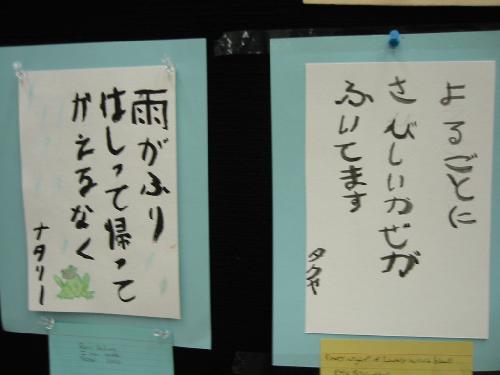 雨がふり
はしって帰って
かえるなく
ナタリー
よるごとに
さびしいかぜが
ふいてます
タクヤ